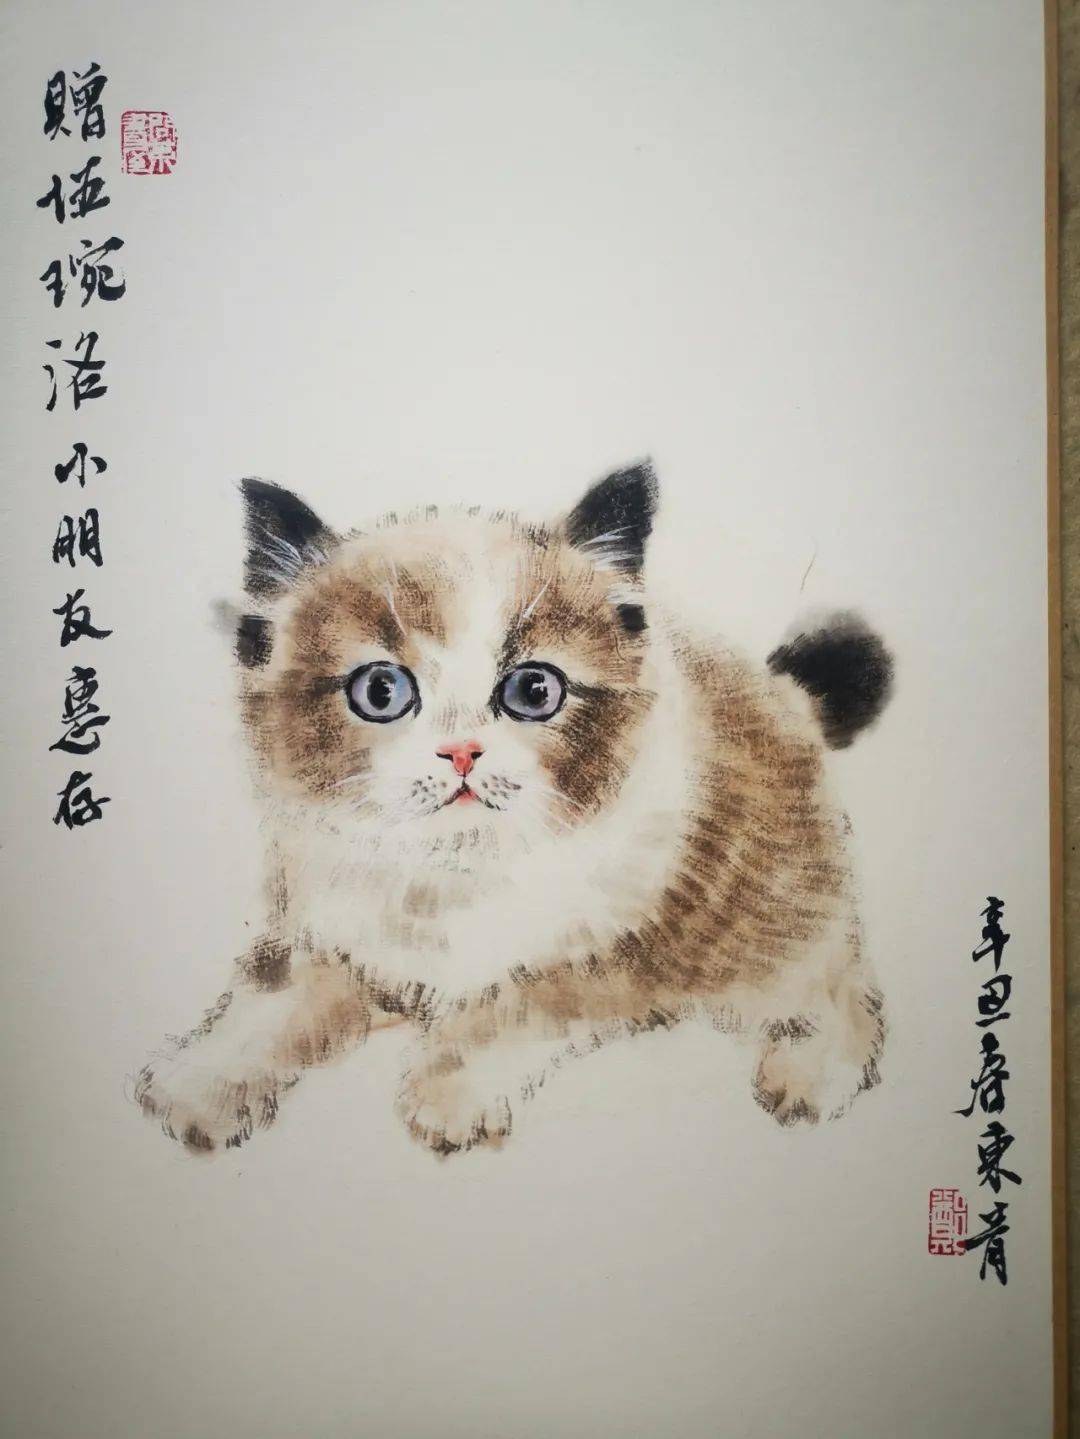 贈伍琬洛小朋友惠存
辛丑春東青